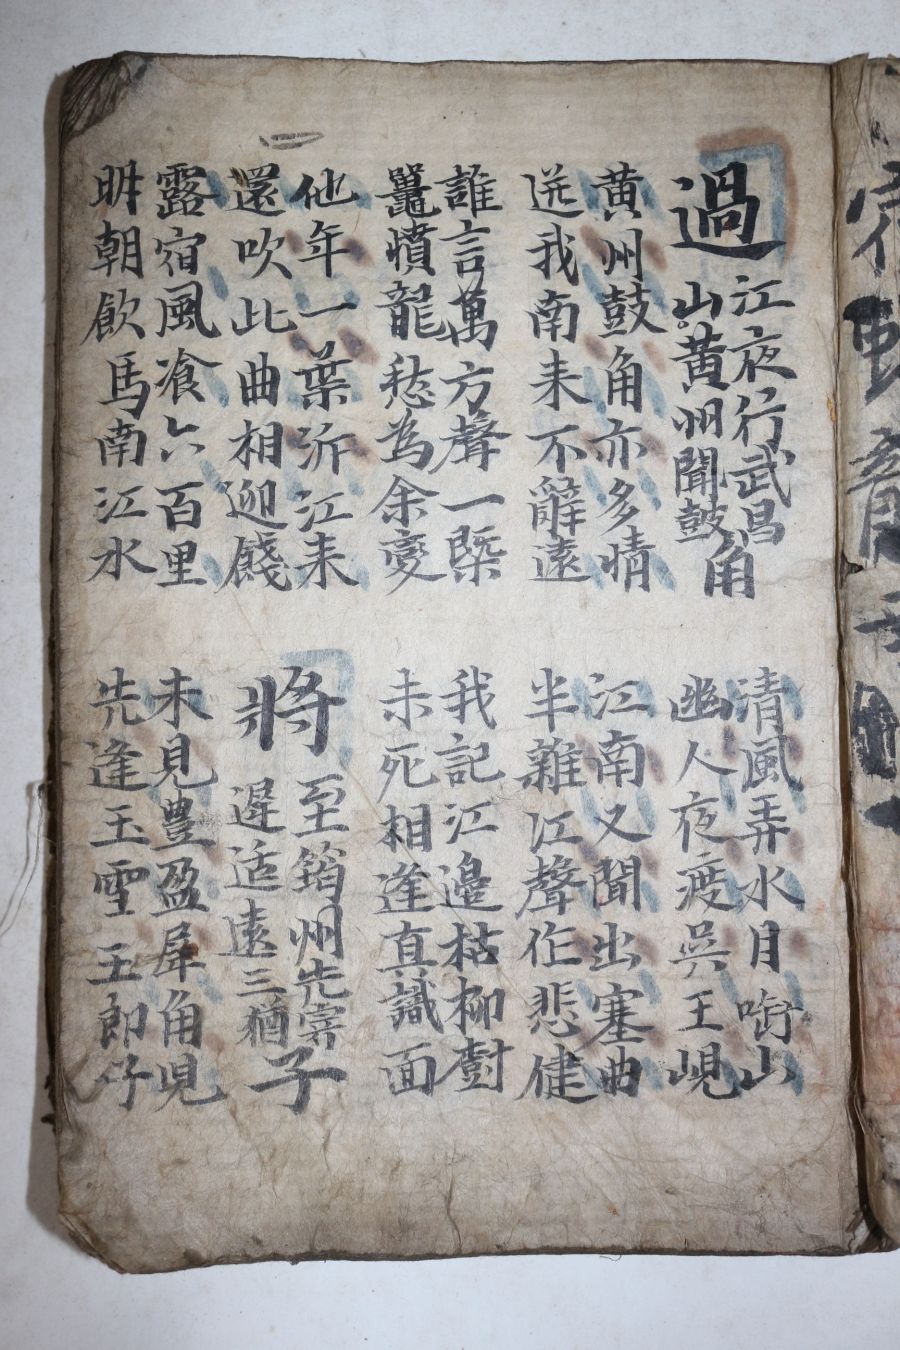 過
江夜行武昌
山黃州聞鼓
角
清風弄水月啣山
幽人夜渡吳王峴
黃州鼓角亦多情
送我南来不辭遠
江南又聞出塞曲
半雜江聲作悲健
誰言萬方聲一槩
鼉憤龍愁為余變
我記江邊枯柳樹
未死相逢真識面
他年一葉泝江来
還吹此曲相迎餞
將
至筠州先寄
遲适遠三猶
子
露宿風飡六百里
明朝飲馬南江水
未見豊盈犀角児
先逢玉雪王郎子